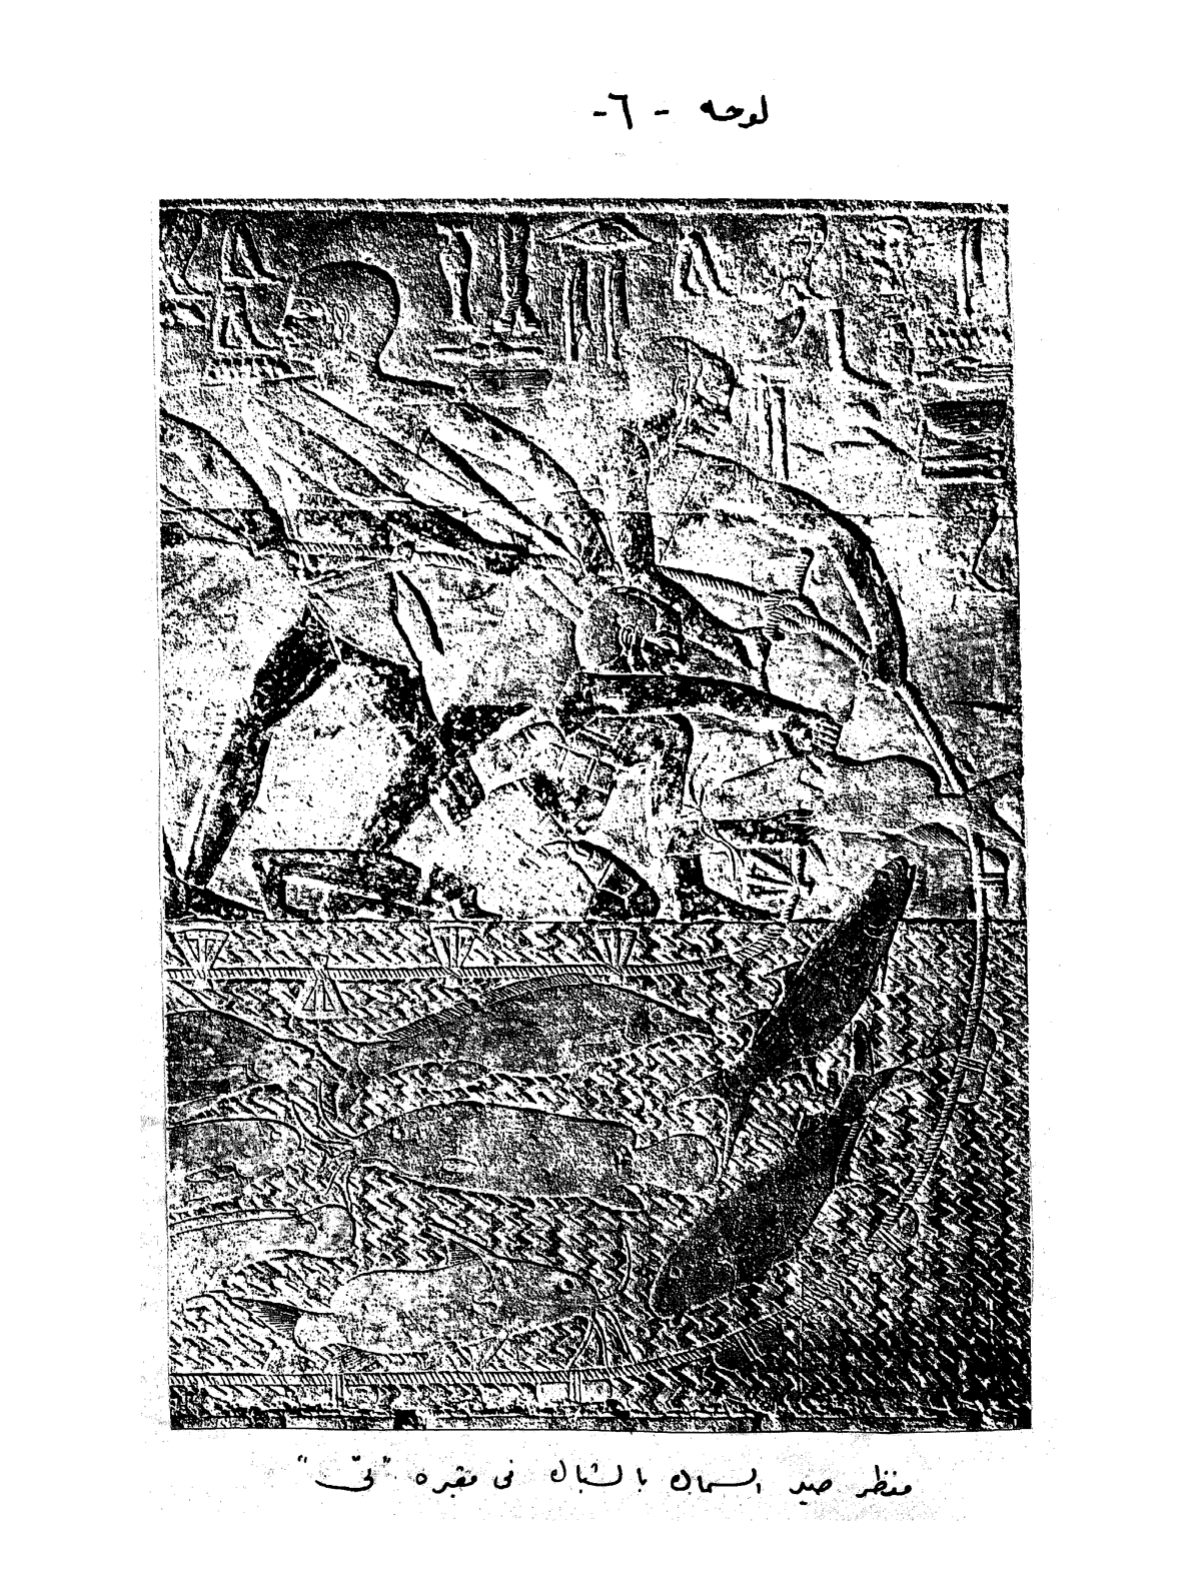 لوحه - ٦ -
منظر صيد السماك بالشباك فى مقبره "تى"